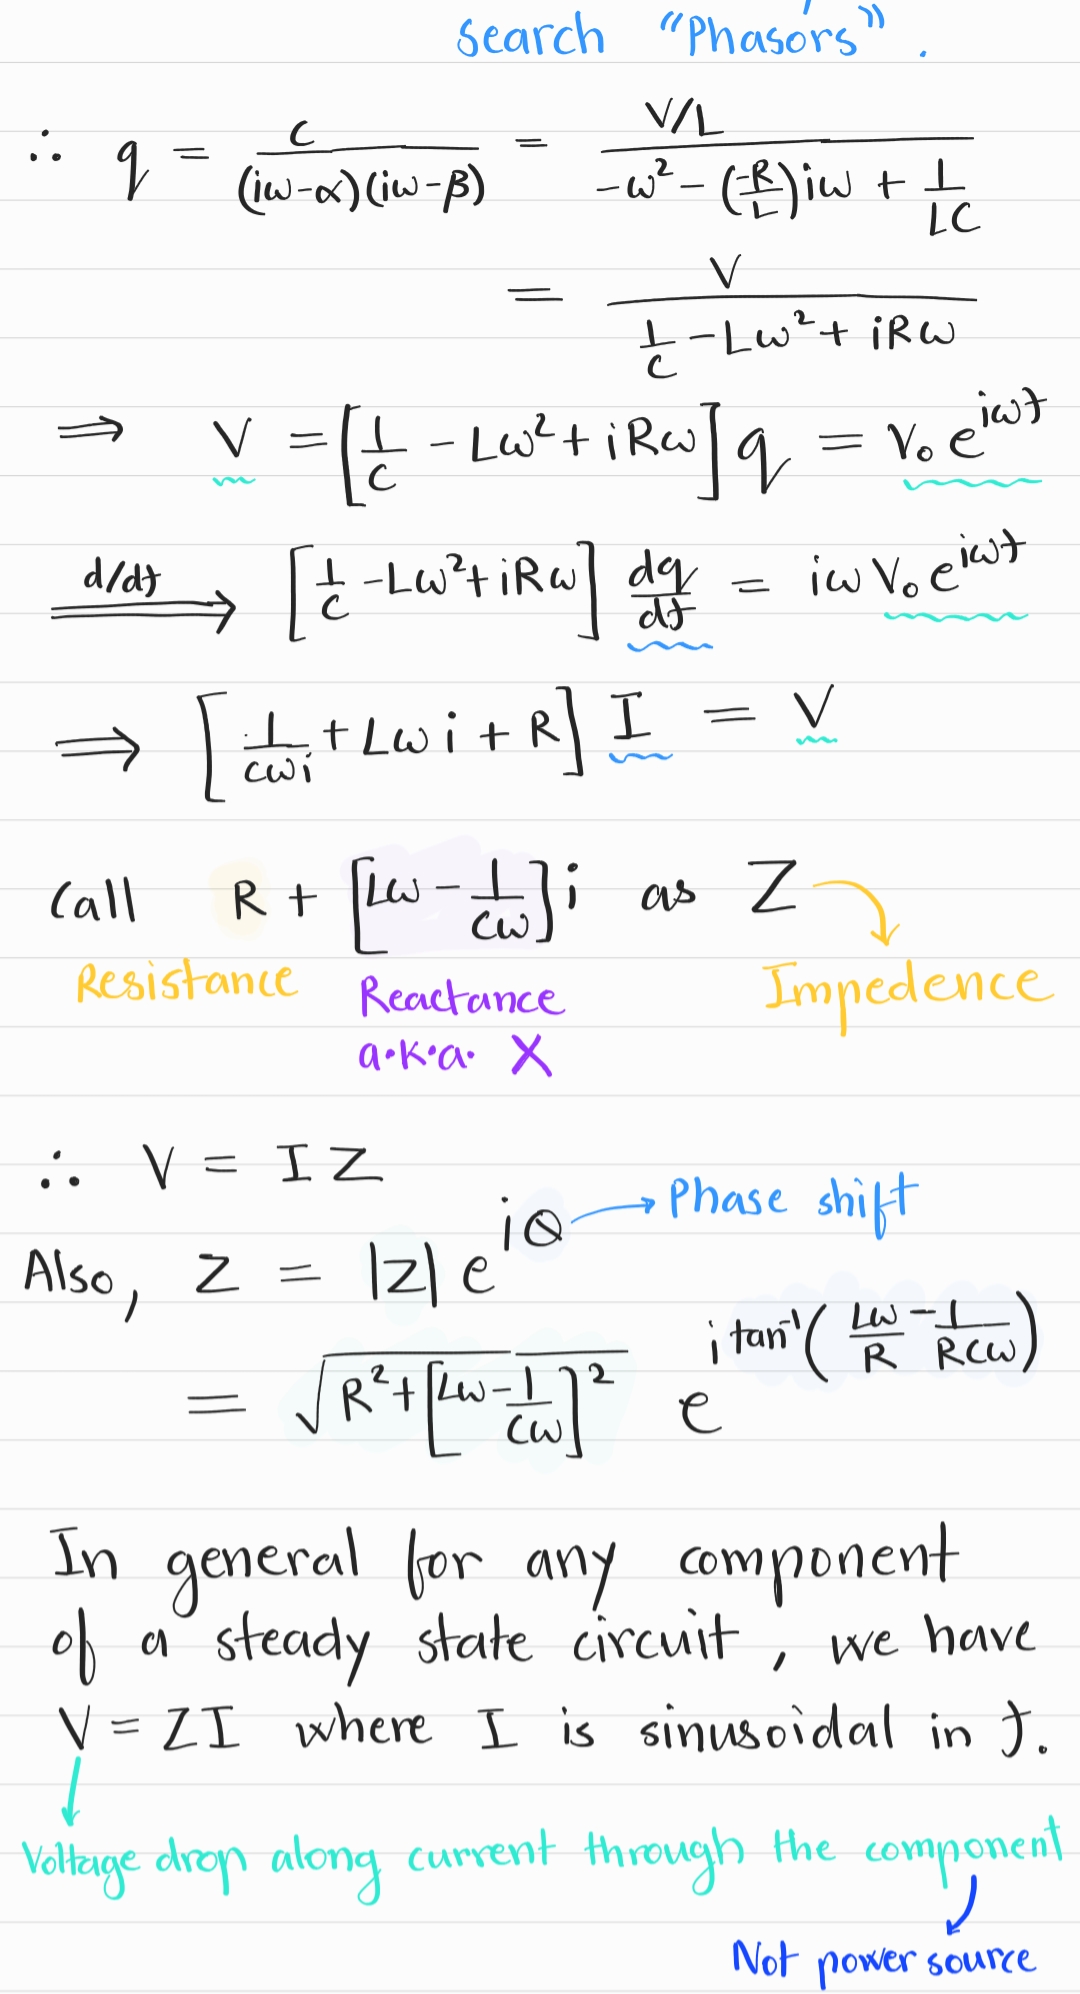 search "Phasors".
∴ q = c / (iω-α)(iω-β) = V/L / -ω² - (-R/L)iω + 1/LC
= V / 1/C - Lω² + iRω
⇒ V = [1/C - Lω² + iRω] q = V₀ e^{iωt}
d/dt ⇒ [1/C - Lω² + iRω] dq/dt = iω V₀ e^{iωt}
⇒ [1/Cωi + Lωi + R] I = V
Call R + [Lω - 1/Cω] i as Z
Resistance Reactance Impedence
a.k.a. X
∴ V = I Z
Also, Z = |Z| e^{iθ} → Phase shift
= √(R² + [Lω - 1/Cω]²) e^{i tan⁻¹(Lω/R - 1/RCω)}
In general for any component
of a steady state circuit, we have
V = ZI where I is sinusoidal in t.
Voltage drop along current through the component
Not power source